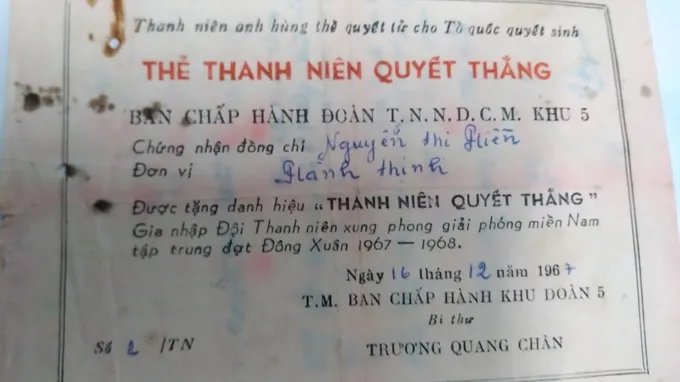 Thanh niên anh hùng thề quyết tử cho Tổ quốc quyết sinh
THẺ THANH NIÊN QUYẾT THẮNG
BAN CHẤP HÀNH ĐOÀN T.N.N.D.C.M. KHU 5
Chứng nhận đồng chí Nguyễn thi Hiền
Đơn vị Hành thịnh
Được tặng danh hiệu “THANH NIÊN QUYẾT THẮNG”
Gia nhập Đội Thanh niên xung phong giải phóng miền Nam
tập trung đợt Đông Xuân 1967 — 1968.
Ngày 16 tháng 12 năm 1967
T.M. BAN CHẤP HÀNH KHU ĐOÀN 5
Bí thư
Số 2 /TN
TRƯƠNG QUANG CHẨN